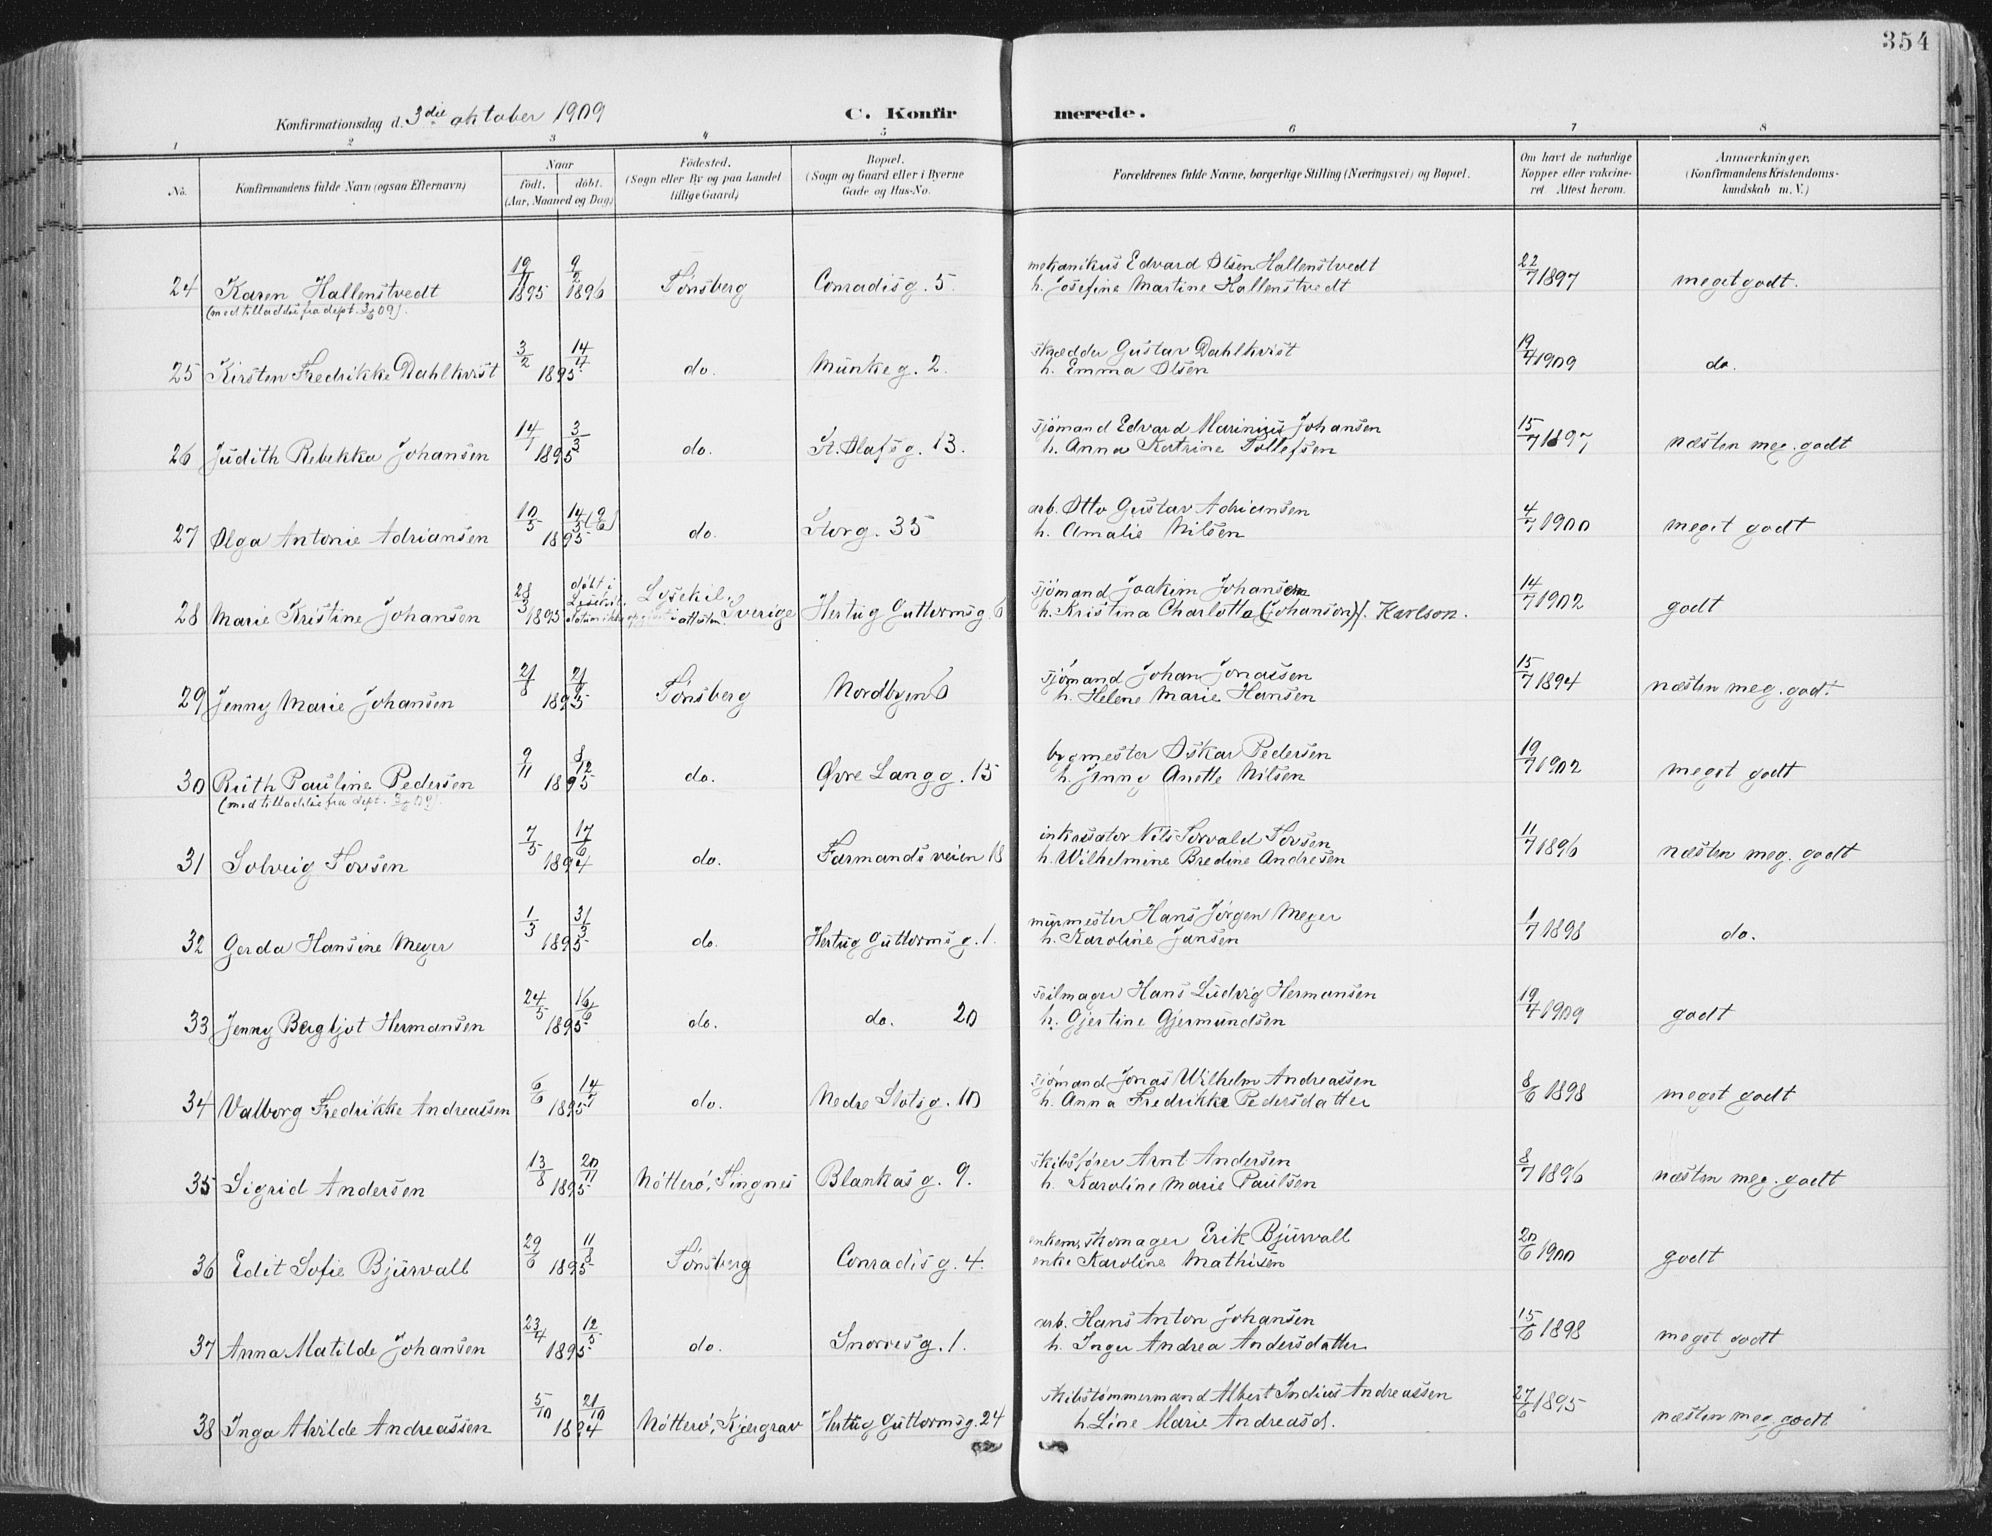 354
Konfirmationsdag d. 3die oktober 1909
C. Konfirmerede.
1 2 3 4 5 6 7 8
No. Konfirmandens fulde Navn (ogsaa Efternavn) Naar født. døbt. (Aar, Maaned og Dag) Fødested. (Sogn eller By og paa Landet tillige Gaard) Bopæl. (Sogn og Gaard eller i Byerne Gade og Hus-No. Forældrenes fulde Navne, borgerlige Stilling (Næringsvei) og Bopæl. Om havt de naturlige Kopper eller vakcineret. Attest herom. Anmærkninger. (Konfirmandens Kristendomskundskab m. V.)
24 Karen Hallenstvedt 19/11 1895 9/2 1896 Tønsberg Conradisg. 5. mekanikus Edvard Olsen Hallenstvedt 22/7 1897 meget godt.
(med tilladelse fra dept. 09). h. Josefine Martine Hallenstvedt
25 Kirsten Fredrikke Dahlkvist 3/2 14/4 1895 do. Munkeg. 2. skrædder Gustav Dahlkvist 19/4 1909 do.
h. Emma Olsen
26 Judith Rebekka Johansen 14/1 3/3 1895 do. St. Olafsg. 13. sjømand Edvard Marinius Johansen 15/7 1897 næsten meg. godt
h. Anna Katrine Tollefsen
27 Olga Antonie Adriansen 10/5 14/5 (9/6) 1895 do. Storg. 35 arb. Otto Gustav Adriansen 4/7 1900 meget godt
h. Amalie Nilsen
28 Marie Kristine Johansen 28/3 1895 døbt i Lysekil. Lysekil. Sverige Hertug Guttormsg. 6 sjømand Joakim Johansen 14/7 1902 godt
h. Kristina Charlotta (Johanson) f. Karlson.
29 Jenny Marie Johansen 21/8 21/9 1895 Tønsberg Nordbyen 6 sjømand Johan Jonassen 15/7 1894 næsten meg. godt
h. Helene Marie Hansen
30 Ruth Pauline Pedersen 9/11 8/12 1895 do. Øvre Langg. 15 bygmester Oskar Pedersen 19/7 1902 meget godt
(med tilladelse fra dept. 09). h. Jenny Anette Nilsen
31 Solveig Tovsen 7/5 17/6 1894 do. Farmandsveien 18 inkassator Nils Torvald Tovsen 11/7 1896 næsten meg. godt
h. Wilhelmine Bredine Andresen
32 Gerda Hansine Meyer 1/3 31/3 1895 do. Hertug Guttormsg. 1. murmester Hans Jørgen Meyer 1/7 1898 do.
h. Karoline Jansen
33 Jenny Bergljot Hermansen 24/5 16/6 1895 do. do. 20 seilmager Hans Ludvig Hermansen 19/4 1909 godt
h. Gjertine Gjermundsen
34 Valborg Fredrikke Andreassen 6/6 14/7 1895 do. Nedre Slotsg. 10 sjømand Jonas Wilhelm Andreassen 8/6 1898 meget godt
h. Anna Fredrikke Pedersdatter
35 Sigrid Andersen 13/8 20/11 1895 Nøtterø, Tingnes Blankasg. 9. skibsfører Arnt Andersen 8/7 1896 næsten meg. godt
h. Karoline Marie Paulsen
36 Edit Sofie Bjurvall 29/6 11/8 1895 Tønsberg Conradisg. 4. enkem, skomager Erik Bjurvall 20/6 1900 godt
enke Karoline Mathisen
37 Anna Matilde Johansen 23/4 12/5 1895 do. Snorresg. 1. arb. Hans Anton Johansen 15/6 1898 meget godt
h. Inger Andrea Andersdatter
38 Inga Alvilde Andreassen 5/10 21/10 1894 Nøtterø, Kjærgrav Hertug Guttormsg. 24 skibstømmermand Albert Indius Andreassen 27/6 1895 næsten meg. godt
h. Line Marie Andreasd.